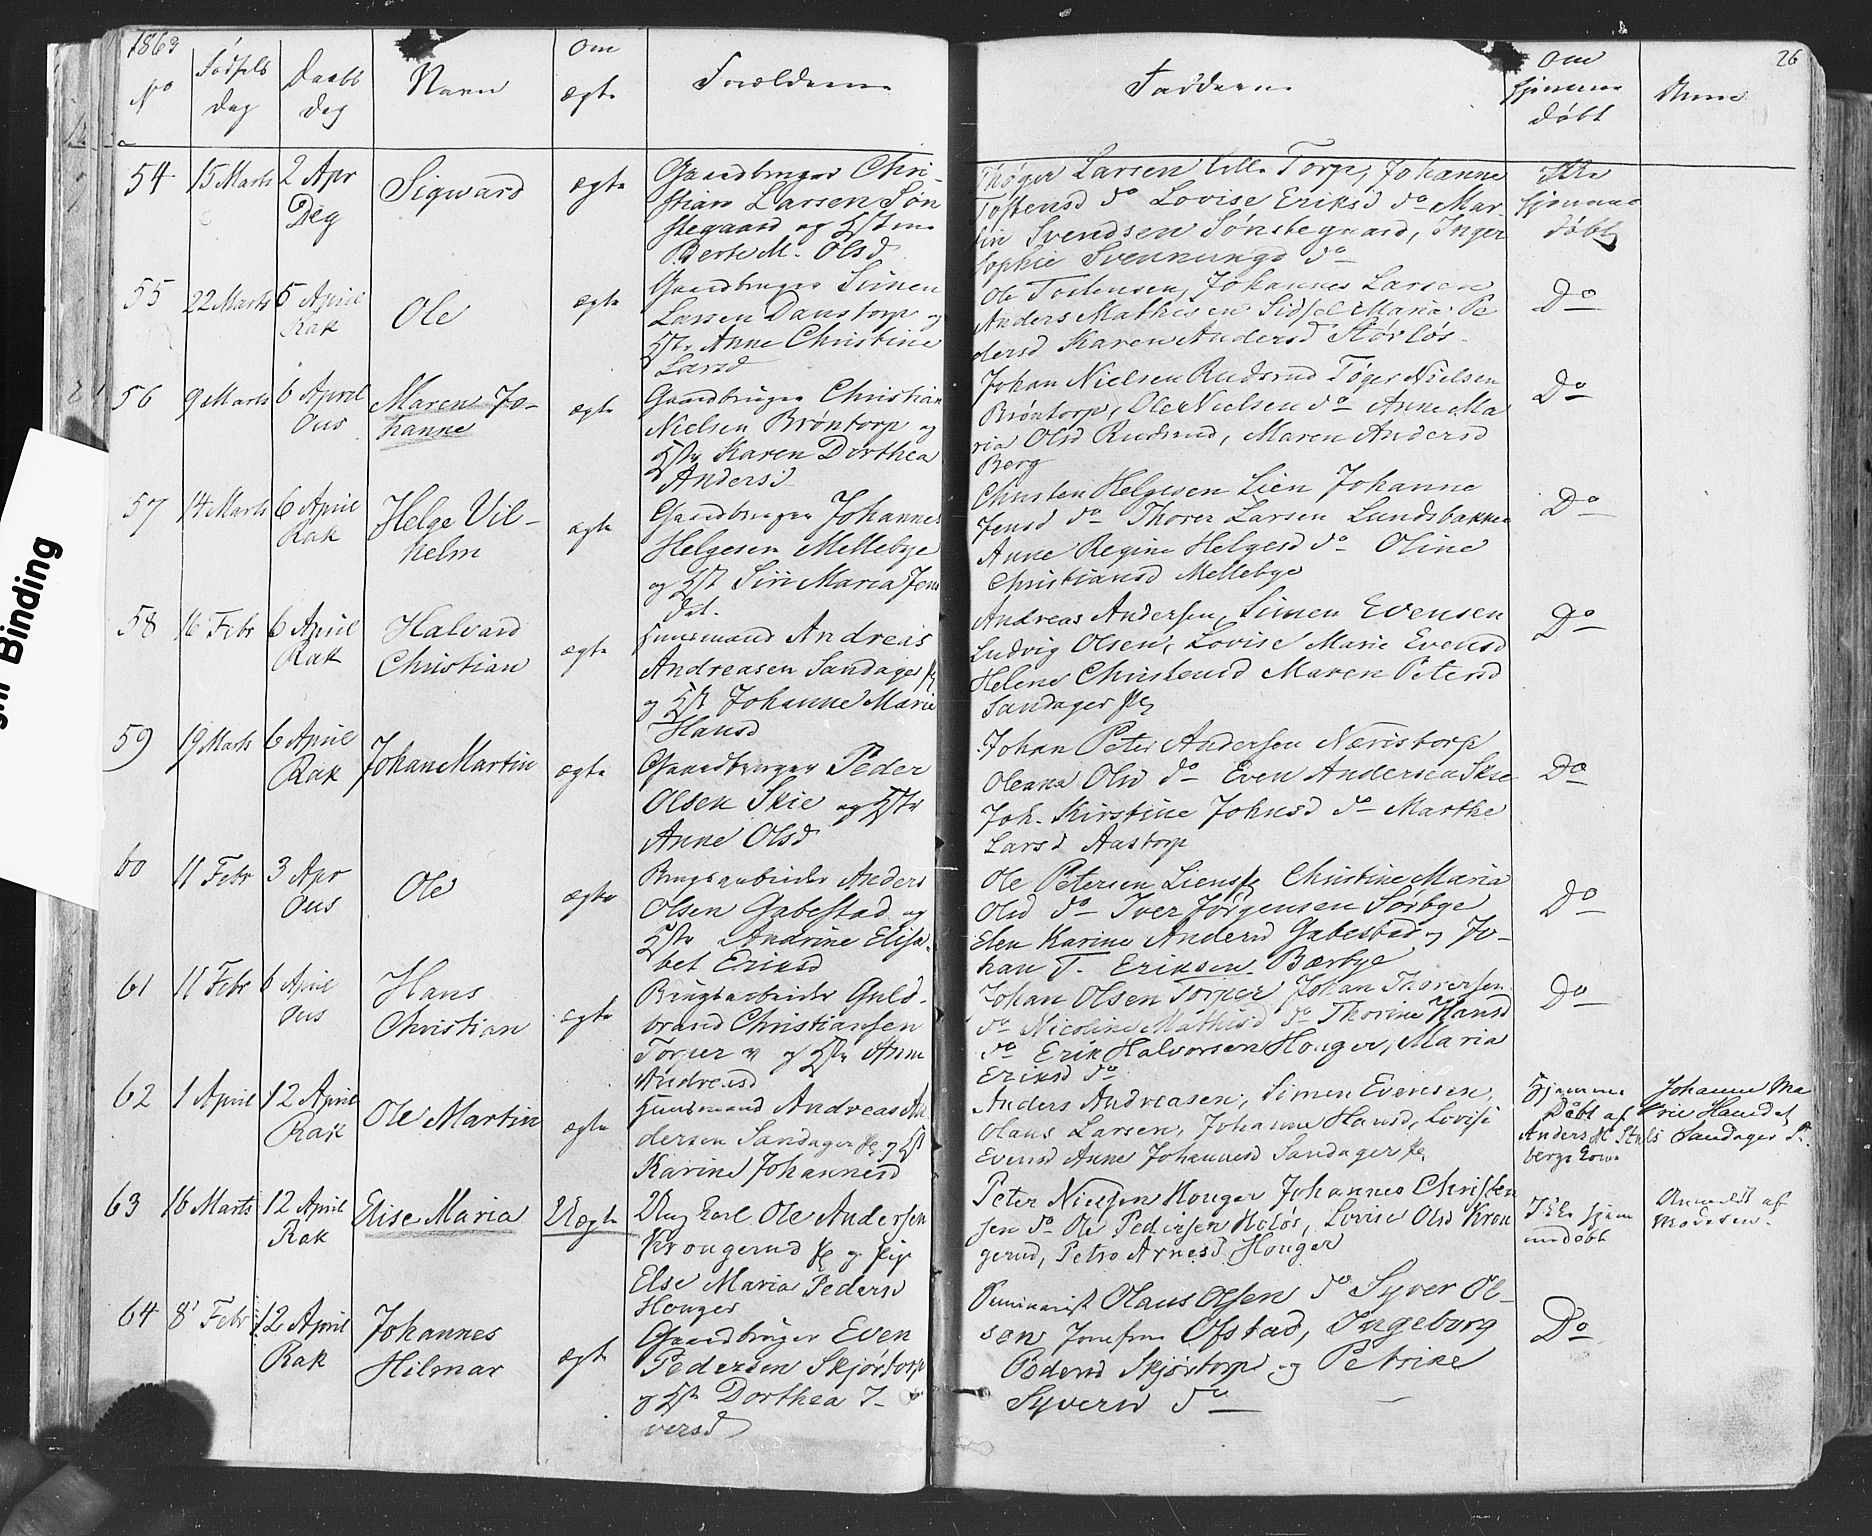 1863
26
No
Fødsels
Dag
Daabs
Dag
Navn
Om
ægte
Forældrene
Fadderne
Om
hjemme
døbt
Anm
54
15 Marts
2 Apr
Deg
Sigvard
ægte
Gaardbruger Chri-
stian Larsen Søn
stegaard og Hstru
Berte M. Olsd
Thøger Larsen Lille Torp, Johanne
Tostensd Do Lovise Eriksd Do Mar-
tin Svendsen Sønstegaard, Inger
Sophie Svennungsd Do
Ikke
hjemme
døbt
55
22 Marts
5 April
Rak
Ole
ægte
Gaardbruger Simen
Larsen Danstorp og
Hstr Anne Christine
Larsd
Ole Tostensen, Johannes Larsen
Anders Mathisen Sidsel Maria Pe
dersd Karen Andersd Størløs
Do
56
9 Marts
6 April
Ous
Maren Jo-
hanne
ægte
Gaardbruger Christian
Nielsen Brøntorp og
Hstr Karen Dorthea
Andersd
Johan Nielsen Rudsrud Tøger Nielsen
Brøntorp, Ole Nielsen Do Anne Ma
ria Olsd Rudsrud, Maren Andersd
Berg
Do
57
14 Marts
6 April
Rak
Helge Vil-
helm
ægte
Gaardbruger Johannes
Helgesen Mellebye
og Hst Siri Maria Jens
dat.
Christen Helgesen Lien Johanne
Jensd Do Thorer Larsen Lundsbakken
Anne Regine Helgesd Do Oline
Christiansd Mellebye
Do
58
16 Febr
6 April
Rak
Halvard
Christian
ægte
Huusmand Andreas
Andreasen Sandager
og Hst Johanne Marie
Hansd
Andreas Andersen, Simen Evensen
Ludvig Olsen, Lovise Marie Evensd
Helene Christensd Maren Petersd
Sandager
Do
59
19 Marts
6 April
Rak
Johan Martin
ægte
Gaardbruger Peder
Olsen Skie og Hstr
Anne Olsd
Johan Peter Andersen Næristorp
Oleana Olsd Do Even Andersen Skie
Joh. Kirstine Johnsd Do Marthe
Larsd Aastorp
Do
60
11 Febr
3 Apr
Ous
Ole
ægte
Brugsarbeider Anders
Olsen Gabestad og
Hstr Andrine Elisa-
bet Eriksd
Ole Petersen Liens Christine Maria
Olsd Do Iver Jørgensen Sørbye
Elen Karine Andersd Gabestad og Jo-
han T. Eriksen Børbye
Do
61
11 Febr
6 April
Ous
Hans
Christian
ægte
Brugsarbeider Guld-
brand Christiansen
Torper og Hstr Anne
Andreasd
Johan Olsen Torper Johan Thoresen
Do Nicoline Mathisd Do Thorine Hansd
Do Erik Halvorsen Houger, Maria
Eriksd Do
Do
62
1 April
12 April
Rak
Ole Martin
ægte
Huusmand Andreas An
dersen Sandager og Hst
Karine Johannesd
Anders Andreasen, Simen Evensen,
Olaus Larsen, Johanne Hansd, Lovise
Evensd Anne Johannesd Sandager
Hjemme
Døbt af
Anders
Johanne Ma
rie Hansdat
Sandager
63
16 Marts
12 April
Rak
Elise Maria
Uægte
Ung Karl Ole Andersen
Krougerud og Pige
Else Maria Pedersd
Houger
Peter Nielsen Houger Johannes Christen
sen Do Ole Pedersen Holøs, Lovise Olsd Krou
gerud, Petro Arnesd Houger
Ikke hjem
medøbt
Anmeldt af
Moderen.
64
8 Febr
12 April
Rak
Johannes
Hilmar
ægte
Gaardbruger Even
Pedersen Skjørtorp
og Hstr Dorthea I-
versd
Seminarist Olaus Olsen Do Syver Ol-
sen Jomfru Ofstad, Ingeborg
Pedersd Skjørtorp og Petrine
Syversd Do
Do
Binding